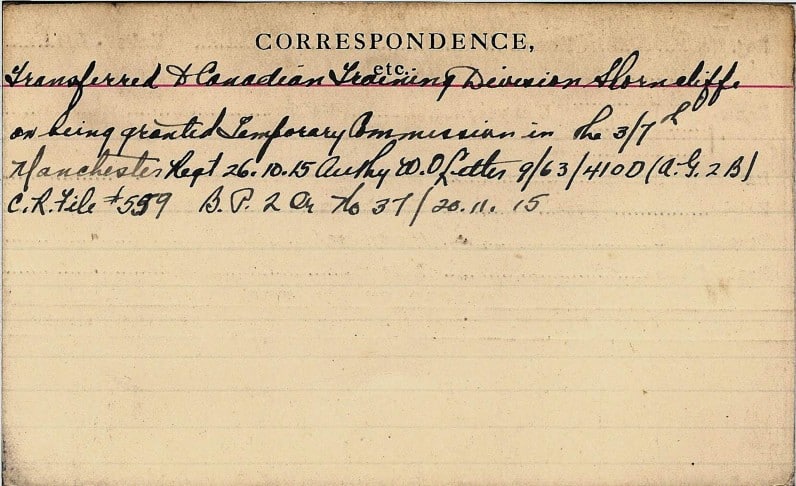 CORRESPONDENCE,
etc.
Transferred to Canadian Training Division Shorncliffe
on being granted Temporary Commission in the 3/7th
Manchester Regt 26.10.15 Authy W.O Letter 9/63/4100 (A.G. 2 B)
C.R. File #559 B.P. 2 Or No 37/20.11.15